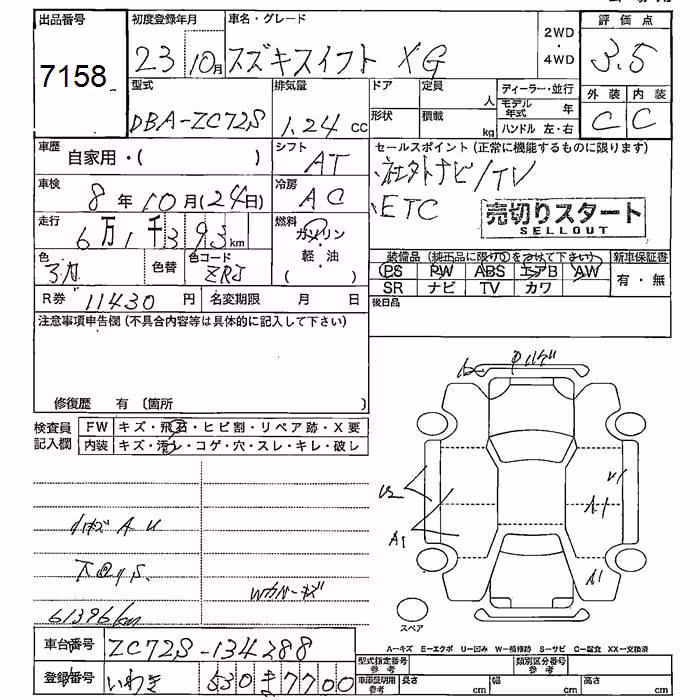 出品番号 7158
初度登録年月 23 10月
車名・グレード スズキスイフト XG
2WD・4WD
評価点 3.5
外装 C 内装 C
型式 DBA-ZC72S
排気量 1.24 cc
ドア 形状
定員 人
積載 kg
ディーラー・並行
モデル年式 年
ハンドル 左・右
車歴 自家用・( )
シフト AT
セールスポイント (正常に機能するものに限ります)
社外ナビ/TV
ETC
売切りスタート
SELLOUT
車検 8年10月(24日)
冷房 AC
走行 6万1千393km
燃料 ガソリン・軽・油 ( )
色 色替 色コード ZRJ
装備品 (純正品に限り○をつけて下さい)
PS PW ABS エアB AW
SR ナビ TV カワ
新車保証書 有・無
R券 11430円
名変期限 月 日
後日品
注意事項申告欄 (不具合内容等は具体的に記入して下さい)
修復歴 有 (箇所
検査員記入欄
FW キズ・飛石・ヒビ割・リペア跡・X要
内装 キズ・汚レ・コゲ・穴・スレ・キレ・破レ
U2
A1
A1
A1
小キズAU
61396km
Wカバーキズ
スペア
A-キズ E-エクボ U-凹み W-補修跡 S-サビ C-腐食 XX-交換済
車台番号 ZC72S-134288
登録番号 いわき 530 き 7700
型式指定番号 参考
類別区分番号 参考
車庫証明用 参考
長さ cm 幅 cm 高さ cm